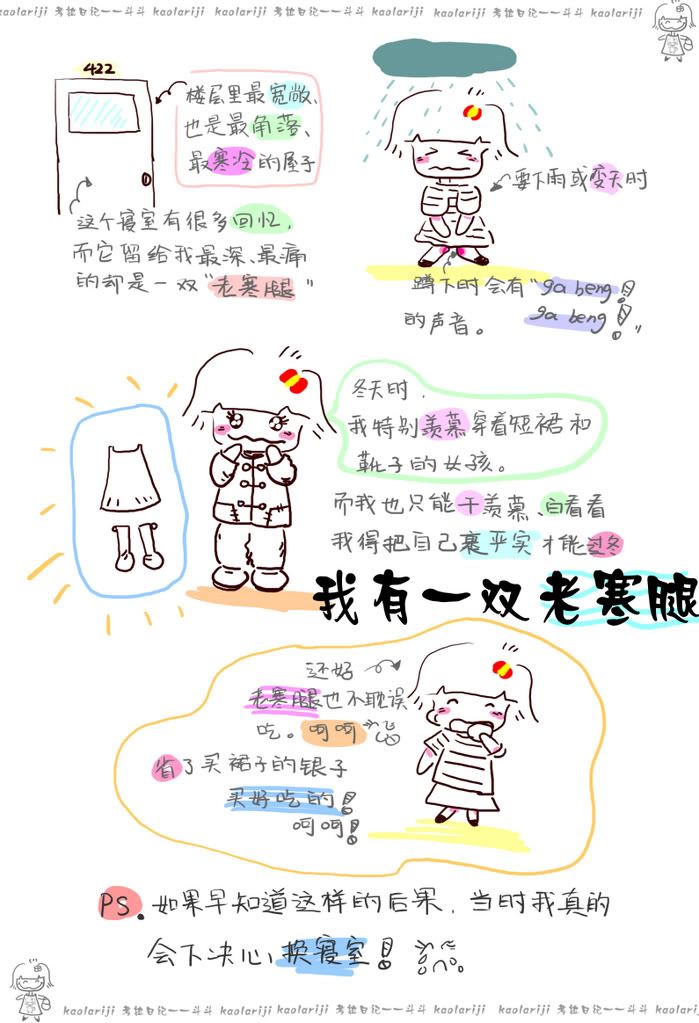 kaolariji 考拉日记——斗斗 kaolariji 考拉日记——斗斗 kaolariji 考拉日记——斗斗 kaolariji
422
楼层里最宽敞、
也是最角落、
最寒冷的屋子
这个寝室有很多回忆,
而它留给我最深、最痛
的却是一双“老寒腿”
要下雨或变天时
蹲下时会有“ga beng!
ga beng!”
的声音。
冬天时,
我特别羡慕穿着短裙和
靴子的女孩。
而我也只能干羡慕、白看看
我得把自己裹严实才能过冬
我有一双老寒腿
还好
老寒腿也不耽误
吃。呵呵
省了买裙子的银子
买好吃的!
呵呵!
PS. 如果早知道这样的后果,当时我真的
会下决心换寝室!
kaolariji 考拉日记——斗斗 kaolariji 考拉日记——斗斗 kaolariji 考拉日记——斗斗 kaolariji